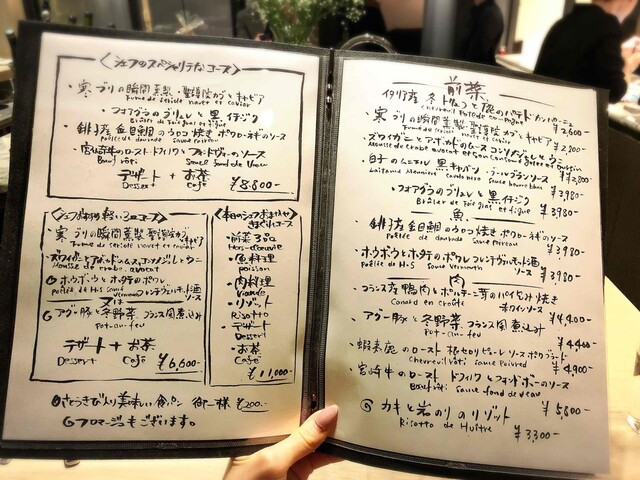 シェフのスペシャリテなコース
・寒ブリの瞬間薫製 聖護院カブとキャビア
Fume de seriole navet et caviar
・フォアグラのブリュレと黒イチジク
Brûler de foie gras et figue
・銚子産 金目鯛のウロコ焼き ポワローネギのソース
poêlée de daurade sauce poireau
・宮崎牛のロースト ドフィノワとフォンドヴォーのソース
Bœuf rôti Sauce fond de Veau
デザート + お茶
Dessert Café
¥8,800-
シェフお好み軽いコース
・寒ブリの瞬間薫製 聖護院カブ キャビア
Fume de seriole navet et caviar
Mousse de crabe, avocat
◎ホウボウとホタテのポワレ フレンチヴェルモット酒ソース
poêlée de H-S sauce vermouth
又は
アグー豚と冬野菜 フランス風煮込み
Pot-au-feu
デザート + お茶
Dessert Café
¥6,600-
本日のシェフおまかせ
・前菜 3品
Hors-d'œuvre
・魚料理
poisson
・肉料理
Viande
・リゾット
Risotto
・デザート
Dessert
・お茶
Café
¥11,000-
◎さとうきび入り美味しい食パン 御一人様 ¥200-
フロマージュもございます。
前菜
¥2,600-
・寒ブリの瞬間薫製 聖護院カブ キャビア
Fume de seriole navet et caviar
¥2,200-
・ズワイガニとアボカドのムース コンソメジュレとウニ
¥2,800-
・白子のムニエル 黒キャベツ ブールブランソース
¥3,980-
・フォアグラのブリュレと黒イチジク
Brûler de foie gras et figue
¥3,980-
魚
・銚子産 金目鯛のウロコ焼き ポワローネギのソース
poêlée de daurade sauce poireau
¥3,980-
・ホウボウとホタテのポワレ フレンチヴェルモット酒ソース
poêlée de H-S sauce vermouth
¥3,980-
肉
・フランス産 鴨肉とポルチーニ茸のパイ包み焼き
Canard en croûte 赤ワインソース
¥4,400-
・アグー豚と冬野菜 フランス風煮込み
Pot-au-feu
¥4,400-
・蝦夷鹿のロースト 根セロリピューレ ソースポワヴラード
Chevreuil rôti sauce Poivrad
¥4,900-
・宮崎牛のロースト ドフィノワとフォンドボーのソース
Bœuf rôti sauce fond de veau
¥5,800-
◎カキと岩のりのリゾット
Risotto de Huître
¥3,300-